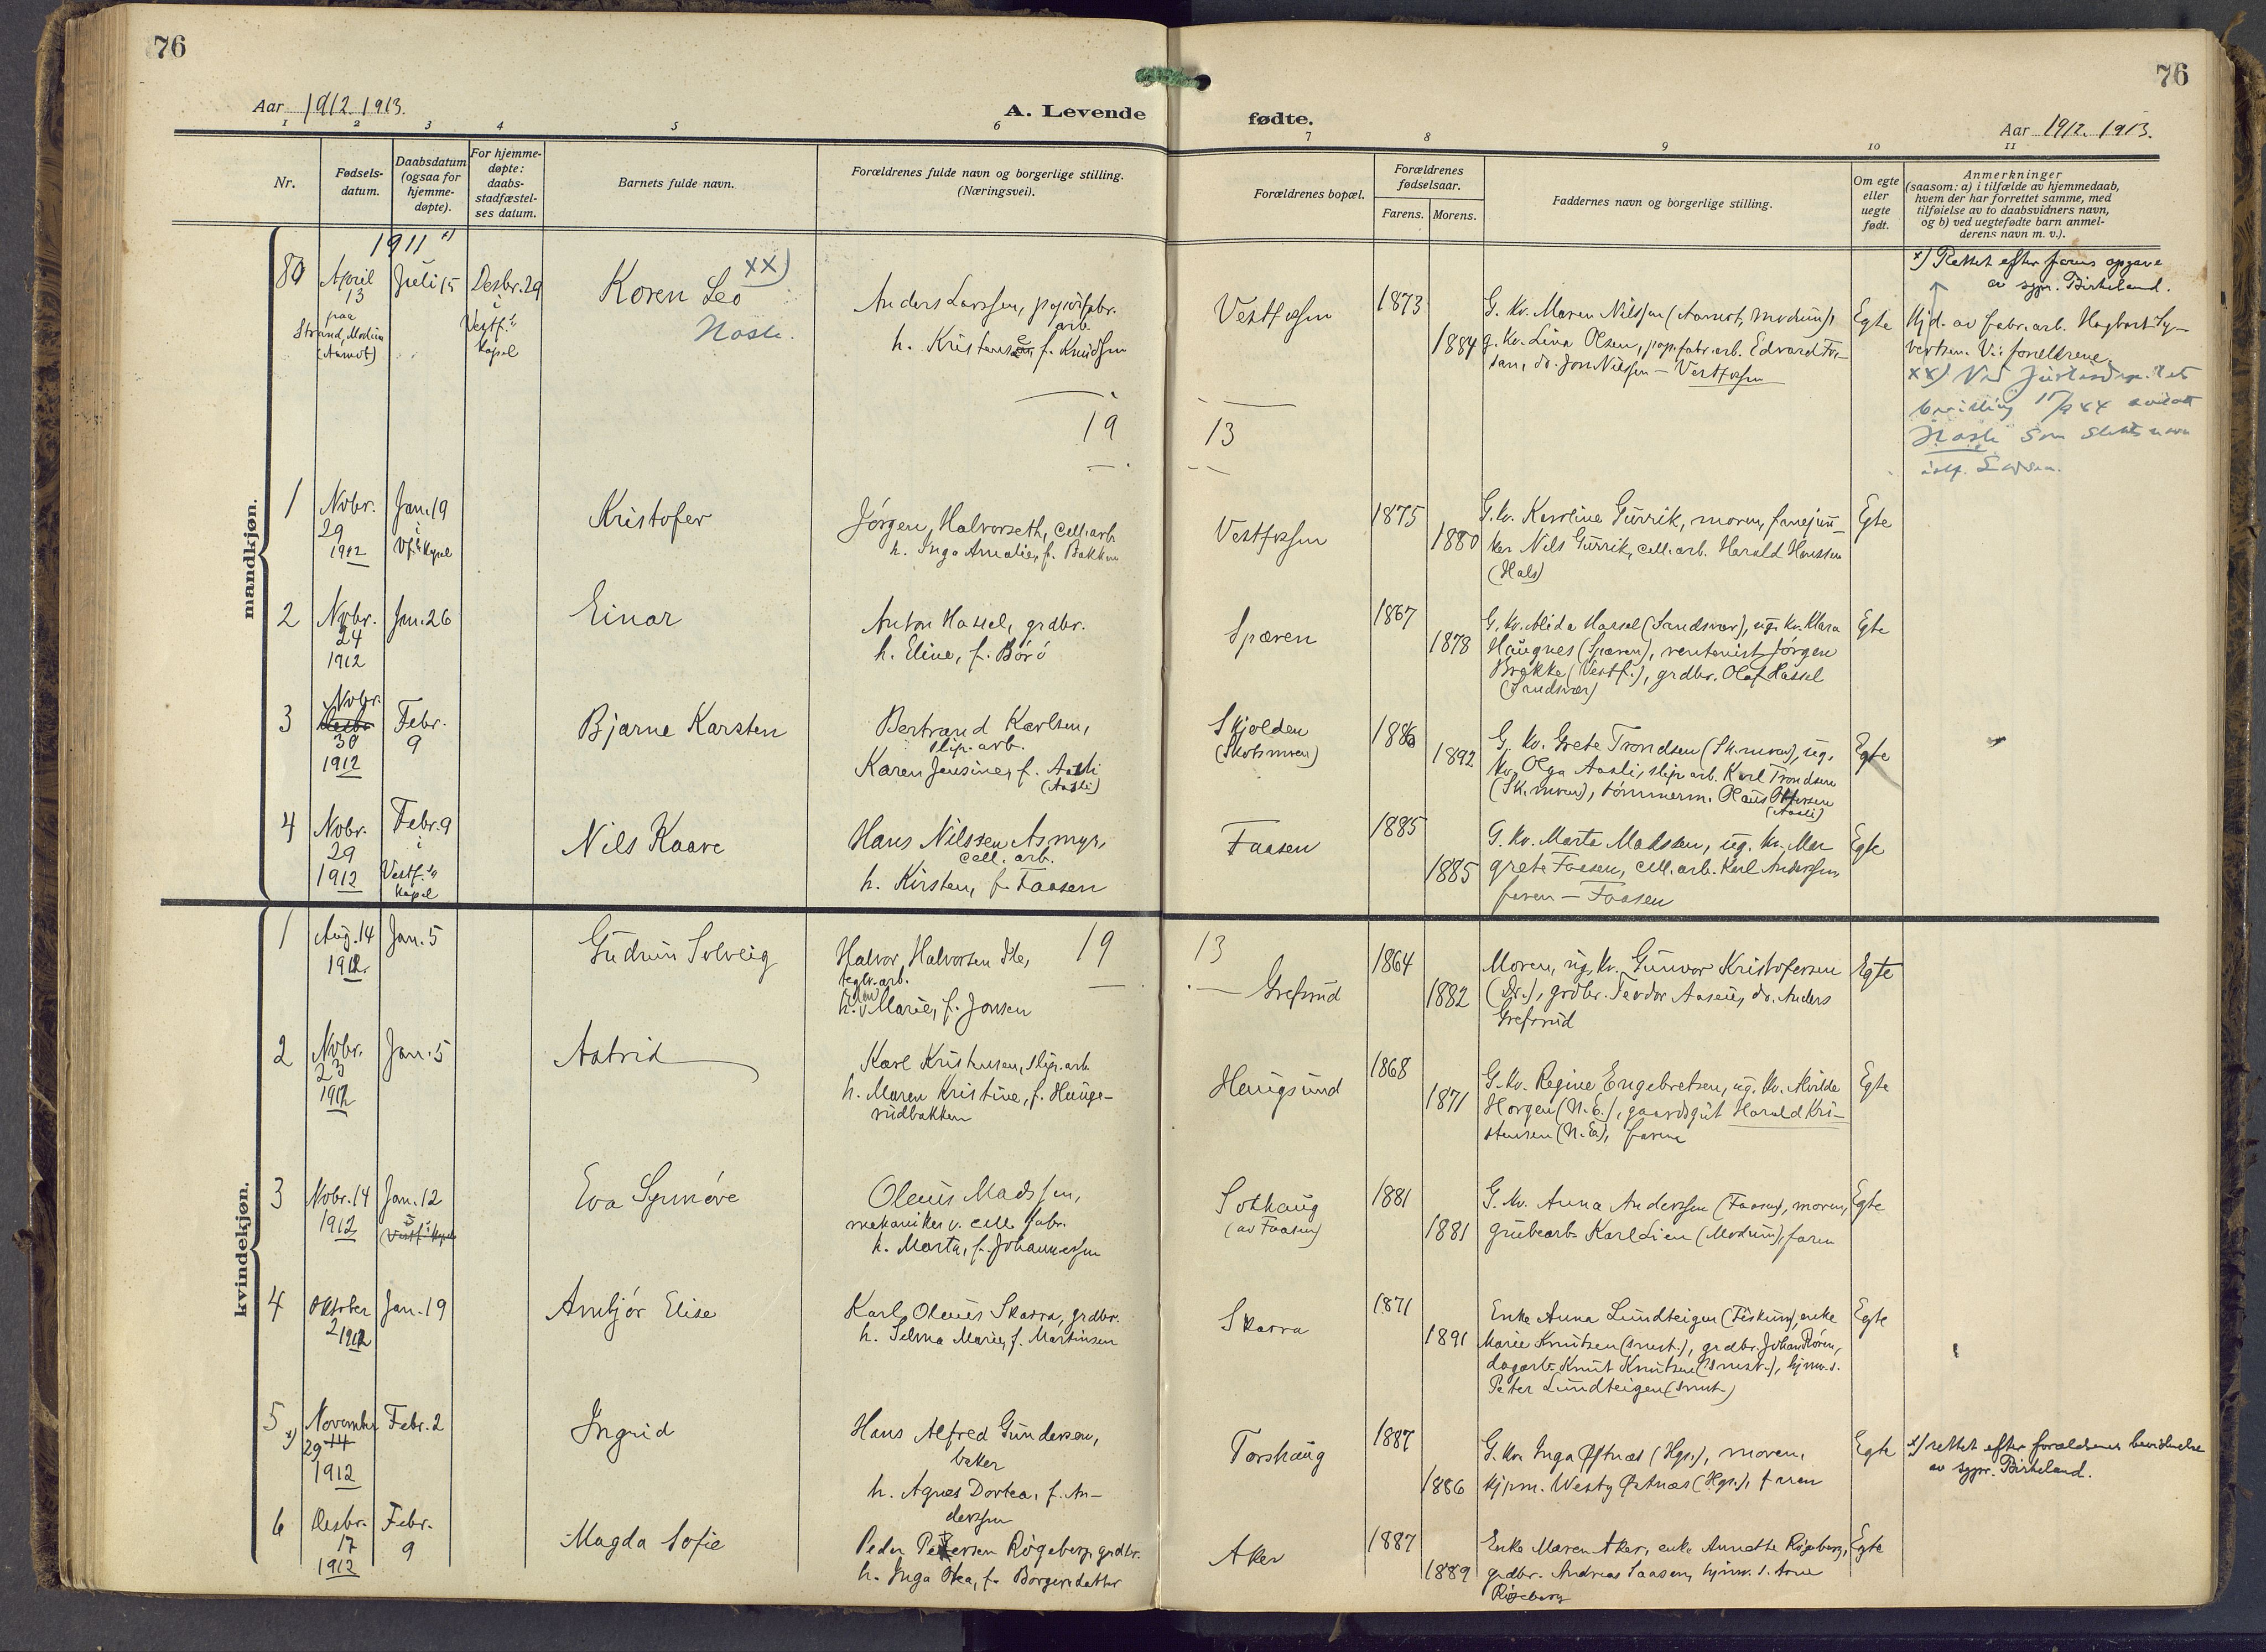 76
76
Aar 1912. 1913.
A. Levende
fødte.
Aar 1912. 1913.
1 2 3 4 5 6 7 8 9 10 11
Nr.
Fødsels-
datum.
Daabsdatum
(ogsaa for
hjemme-
døpte).
For hjemme-
døpte:
daabs-
stadfæstel-
ses datum.
Barnets fulde navn.
Forældrenes fulde navn og borgerlige stilling.
(Næringsvei).
Forældrenes bopæl.
Forældrenes
fødselsaar.
Farens. Morens.
Faddernes navn og borgerlige stilling.
Om egte
eller
uegte
født.
Anmerkninger
(saasom: a) i tilfælde av hjemmedaab,
hvem der har forrettet samme, med
tilføielse av to daabsvidners navn,
og b) ved uegtefødte barn anmel-
derens navn m. v.).
mandkjøn.
1911 x)
80
April
13
paa
Strand, Modum
(Aamot)
Juli 15
Desbr. 29
i
Vestf.s
kapel
Koren Leo xx)
Anders Larssen, papirfabr.
arb.
h. Kristense, f. Knudsen
Vestfossen
1873
1884
G. kv. Maren Nilssen (Aamot, Modum),
g. kv. Lina Olsen, pap.fabr.arb. Edvard
do. Jon Nilssen — Vestfossen
Egte
x) Rettet efter farens opgave
av sgpr. Birkeland.
Hjd. av fabr.arb. Hagbart Sy-
vertsen. V.: forældrene.
xx) Ved
som slektsnavn
istf. Larsen.
19
13
1
Nobr.
29
1912
Jan. 19
i
Vf.s kapel
Kristofer
Jørgen Halvorseth, cell.arb.
h. Inga Amalie, f. Bakken
Vestfossen
1875
1880
G. kv. Karoline Gurrik, moren,
Nils Gurrik, cell.arb. Harald Hanssen
(Hals)
Egte
2
Nobr.
24
1912
Jan. 26
Einar
Anton Hassel, grdbr.
h. Eline, f. Börö
Spæren
1867
1878
G. kv. Alida Hassel (Sandsvær), ug. kv. Klara
Haugnes (Spæren), rentenist Jørgen
Brekke (Vestf.), grdbr. Olaf Hassel
(Sandsvær)
Egte
3
Nobr.
Desbr.
30
1912
Febr.
9
Bjarne Karsten
Bertrand Karlsen,
slip.arb.
Karen Jensine, f. Aasli
(Aasli)
Skjolden
(Skotsmoen)
1886
1892
G. kv. Grete Trondsen (Sk.moen), ug.
kv. Olga Aasli, slip.arb. Karl Trondsen
(Sk.moen), tømmerm. Olaus
(Aasli)
Egte
4
Nobr.
29
1912
Febr. 9
i
Vestf.s
kapel
Nils Kaare
Hans Nilssen Asmyr,
cell. arb.
h. Kirsten, f. Faasen
Faasen
1885
1885
G. kv. Marta Madssen, ug. kv. Mar
grete Faasen, cell.arb. Karl Anderssen,
faren — Faasen
Egte
kvindekjøn.
1
Aug. 14
1912
Jan. 5
Gudrun Solveig
Halvor Halvorsen
teglv.arb.
h. Marie, f. Jonsen
19
13
Grefsrud
1864
1882
Moren, ug. kv. Gunvor Kristofersen
(Dr.), grdbr. Teodor Aaseie, do. Anders
Grefsrud
Egte
2
Nobr.
23
1912
Jan. 5
Astrid
Karl Kristensen, slip.arb.
h. Maren Kristine, f. Hauge-
rudbakken
Haugsund
1868
1871
G. kv. Regine Engebretsen, ug. kv. Alvilde
Horgen (N.E.), gaardsgut Harald Kri-
stensen (N.E.), faren
Egte
3
Nobr. 14
1912
Jan. 12
i
Vestf.s kapel
Eva Synnöve
Oleus Madssen,
mekaniker v. cell. fabr.
h. Marta, f. Johannessen
Solhaug
(av Faasen)
1881
1881
G. kv. Anna Anderssen (Faasen), moren,
grubearb. Karl Lien (Modum), faren
Egte
4
Oktober
2 1912
Jan. 19
Arnbjör Elise
Karl Oleus Skarra, grdbr.
h. Selma Marie, f. Martinsen
Skarra
1871
1891
Enke Anna Lundteigen (Fiskum), enke
Marie Knutsen (smst.), grdbr. Johan Røren,
dagarb. Knut Knutsen (smst.), hjmv. s.
Peter Lundteigen (smst.)
Egte
5
x)
November
29 14
1912
Febr. 2
Ingrid
Hans Alfred Gundersen,
baker
h. Agnes Dortea, f. An-
derssen
Torshaug
1887
1886
G. kv. Inga Østnæs (Hgs.), moren,
kjpm. Westy Østnæs (Hgs.), faren
Egte
x) rettet efter forældrenes bevidnelse
av sgpr. Birkeland.
6
Desbr.
17
1912
Febr.
9
Magda Sofie
Peder Petersen Røgeberg, grdbr.
h. Inga Olea, f. Borgersdatter
Aker
1887
1889
Enke Maren Aker, enke Annette Røgeberg,
grdbr. Andreas Saasen, hjmv. s. Arne
Røgeberg
Egte